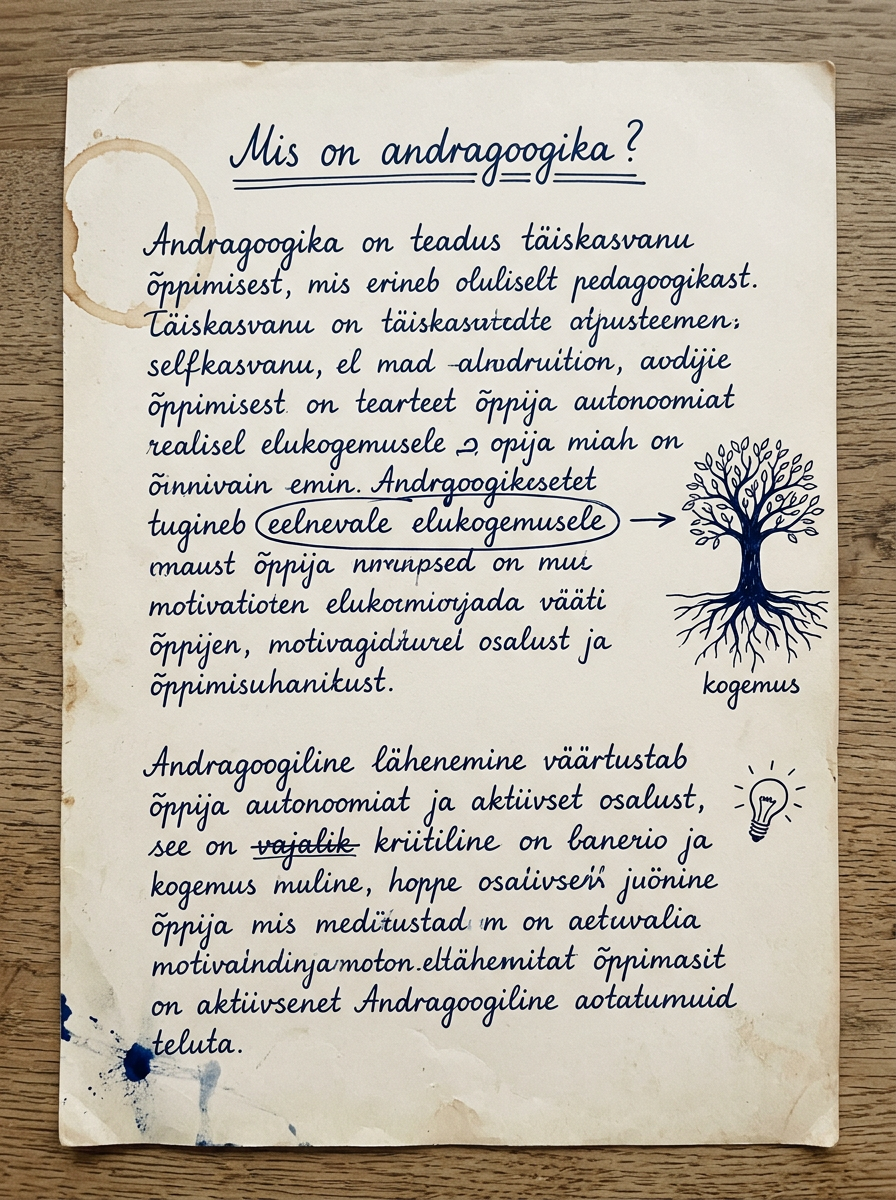 Mis on andragoogika?
Andragoogika on teadus täiskasvanu
õppimisest, mis erineb oluliselt pedagoogikast.
Täiskasvanu on
selfkasvanu, el mad aodijie
õppimisest on tearteet õppija autonoomiat
realisel elukogemusele opija miah on
emin. Andrgoogikesetet
tugineb eelnevale elukogemusele
õppija on
motivatioten vääti
õppijen, osalust ja
õppimisuhanikust.
kogemus
Andragoogiline lähenemine väärtustab
õppija autonoomiat ja aktiivset osalust,
see on vajalik kriitiline on banerio ja
kogemus muline, hoppe juönine
õppija mis on aetuvalia
õppimasit
on aktiivsenet Andragoogiline aotatumuid
teluta.